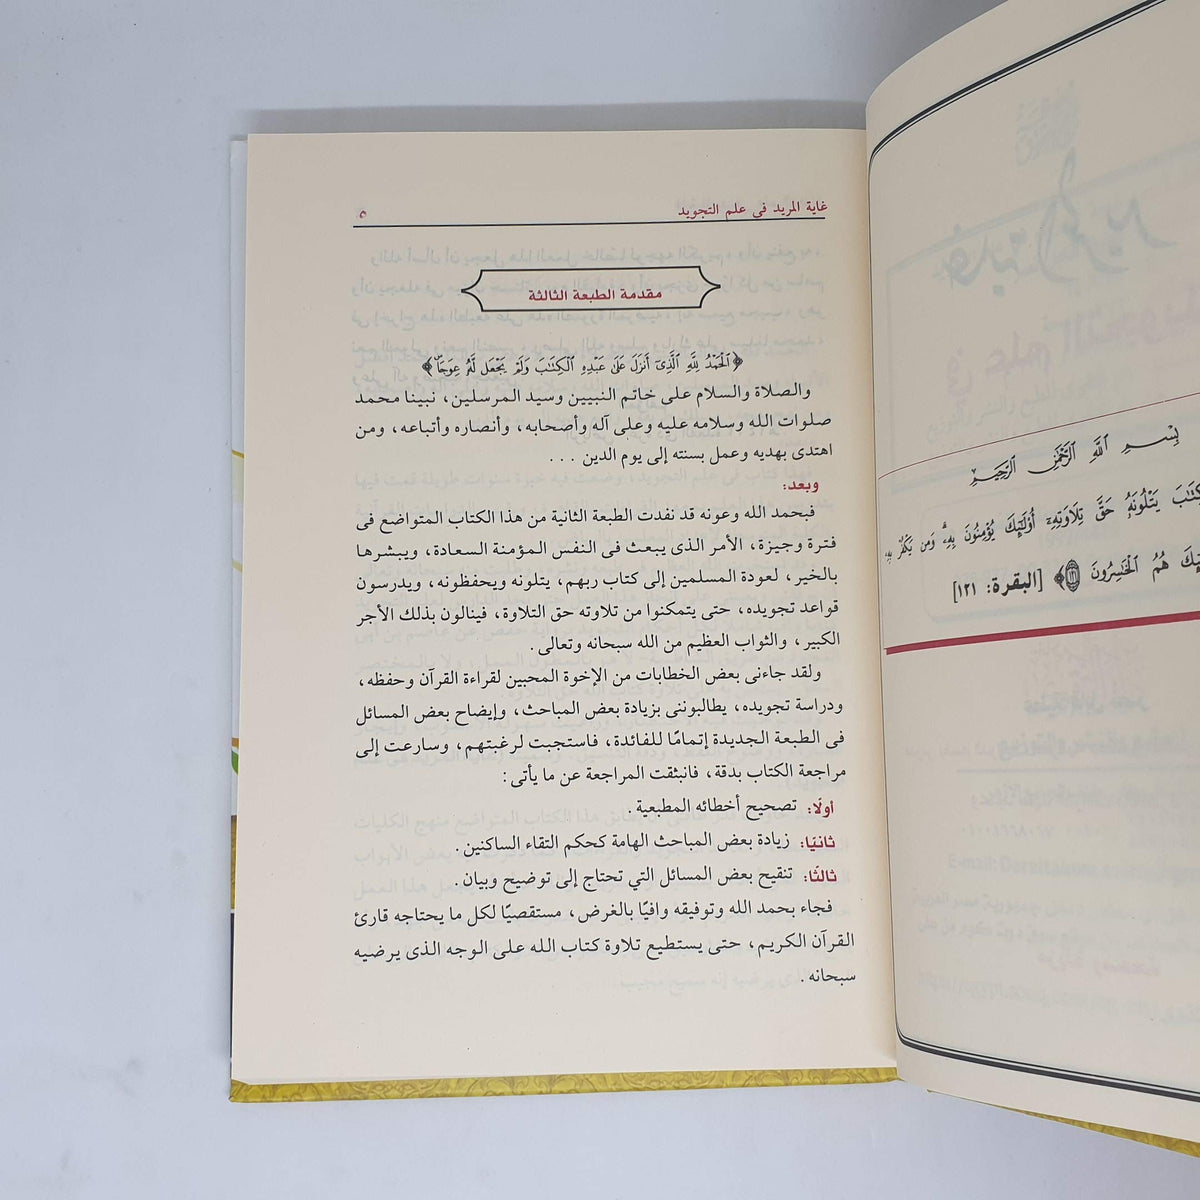 بِسْمِ اللَّهِ الرَّحْمَٰنِ الرَّحِيمِ
يَتْلُونَهُۥ حَقَّ تِلَاوَتِهِۦٓ أُو۟لَٰٓئِكَ يُؤْمِنُونَ بِهِۦ ۗ وَمَن يَكْفُرْ بِهِۦ
هُمُ الْخَٰسِرُونَ ﴿١٢١﴾ [البقرة: ١٢١]
غاية المريد في علم التجويد
٥
مقدمة الطبعة الثالثة
﴿الْحَمْدُ لِلَّهِ الَّذِىٓ أَنزَلَ عَلَىٰ عَبْدِهِ الْكِتَٰبَ وَلَمْ يَجْعَل لَّهُۥ عِوَجَا ۜ﴾
والصلاة والسلام على خاتم النبيين وسيد المرسلين، نبينا محمد
صلوات الله وسلامه عليه وعلى آله وأصحابه، وأنصاره وأتباعه، ومن
اهتدى بهديه وعمل بسنته إلى يوم الدين . . .
وبعد:
فبحمد الله وعونه قد نفدت الطبعة الثانية من هذا الكتاب المتواضع فى
فترة وجيزة، الأمر الذى يبعث فى النفس المؤمنة السعادة، ويبشرها
بالخير، لعودة المسلمين إلى كتاب ربهم، يتلونه ويحفظونه، ويدرسون
قواعد تجويده، حتى يتمكنوا من تلاوته حق التلاوة، فينالون بذلك الأجر
الكبير، والثواب العظيم من الله سبحانه وتعالى.
ولقد جاءنى بعض الخطابات من الإخوة المحبين لقراءة القرآن وحفظه،
ودراسة تجويده، يطالبوننى بزيادة بعض المباحث، وإيضاح بعض المسائل
فى الطبعة الجديدة إتمامًا للفائدة، فاستجبت لرغبتهم، وسارعت إلى
مراجعة الكتاب بدقة، فانبثقت المراجعة عن ما يأتى:
أولًا: تصحيح أخطائه المطبعية.
ثانيًا: زيادة بعض المباحث الهامة كحكم التقاء الساكنين.
ثالثًا: تنقيح بعض المسائل التي تحتاج إلى توضيح وبيان.
فجاء بحمد الله وتوفيقه وافيًا بالغرض، مستقصيًا لكل ما يحتاجه قارئ
القرآن الكريم، حتى يستطيع تلاوة كتاب الله على الوجه الذى يرضيه
سبحانه.